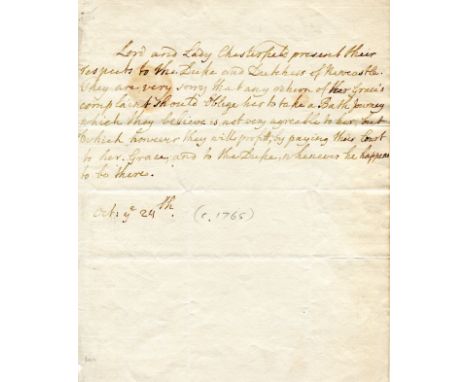 Lord and Lady Chesterfield present their
respects to the Duke and Dutchess of Newcastle.
They are very sorry that any return of Her Grace's
complaint should oblige her to take a Bath Journey
which they believe is not very agreable to her, but
which however they will profit, by paying their Court
to her Grace, and to the Duke, whenever he happens
to be there.
Oct: ye 24th. (c. 1765)